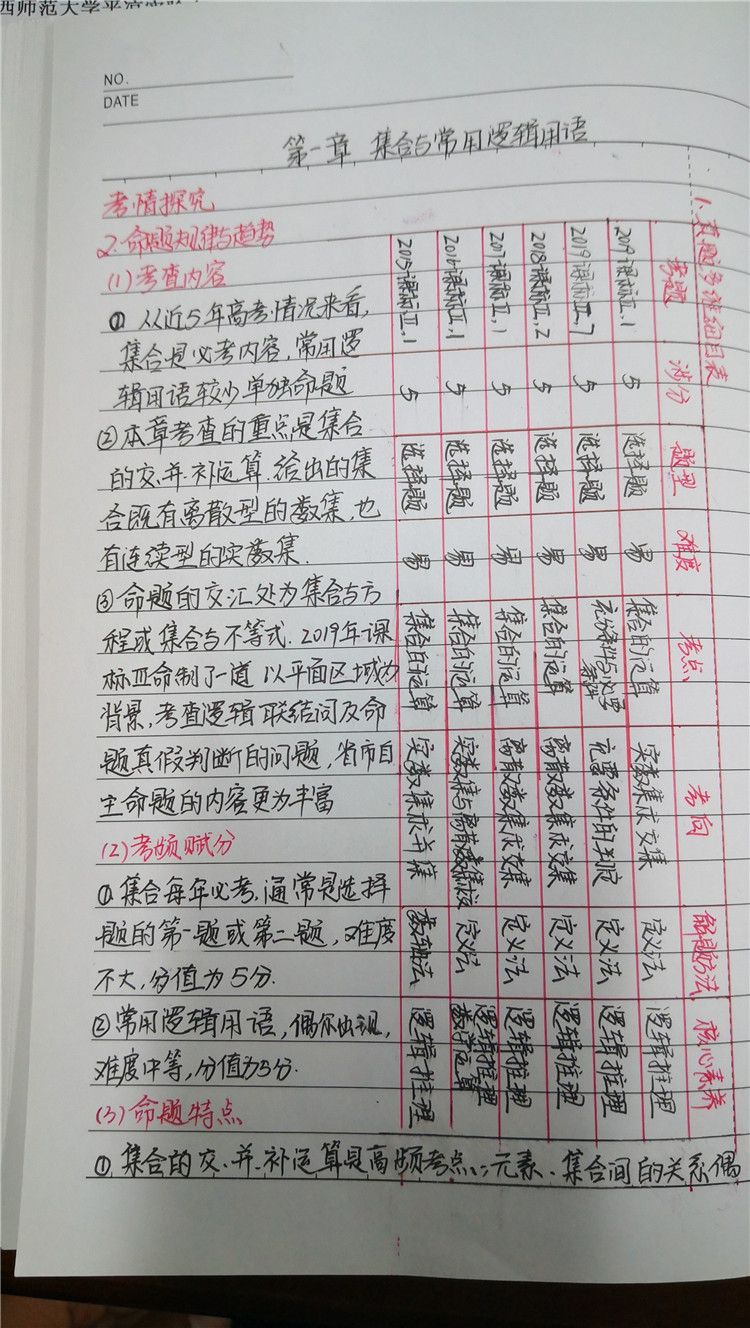 西师范大学平
NO.
DATE
第一章 集合与常用逻辑用语
考情探究
2.命题规律与趋势
(1)考查内容
① 从近5年高考情况来看,
集合是必考内容,常用逻
辑用语较少单独命题
②本章考查的重点是集合
的交.并.补运算.给出的集
合既有离散型的数集,也
有连续型的实数集.
③命题的交汇处为集合与方
程或集合与不等式.2019年课
标Ⅲ命制了一道 以平面区域为
背景,考查逻辑联结词及命
题真假判断的问题,省市自
主命题的内容更为丰富
(2)考频赋分
①集合每年必考,通常是选择
题的第一题或第二题,难度
不大,分值为5分.
②常用逻辑用语,偶尔出现,
难度中等,分值为5分.
(3)命题特点
①集合的交.并.补运算是高频考点.元素、集合间的关系偶
1.真题多维细目表
考题 涉分 题型 难度 考点 考向 解题方法 核心素养
2019课标Ⅱ,1 5 选择题 易 集合的运算 实数集求交集 定义法 逻辑推理
2019课标Ⅱ,7 5 选择题 易 充分条件与必要条件 充要条件的判定 定义法 逻辑推理
2018课标Ⅱ,2 5 选择题 易 集合的运算 离散数集求交集 定义法 逻辑推理
2017课标Ⅱ,1 5 选择题 易 集合的运算 离散数集求交集 定义法 逻辑推理
2016课标Ⅱ,1 5 选择题 易 集合的运算 实数集与离散数集 定义法 逻辑推理 数学运算
2015课标Ⅱ,1 5 选择题 易 集合的运算 实数集求并集 数轴法 逻辑推理